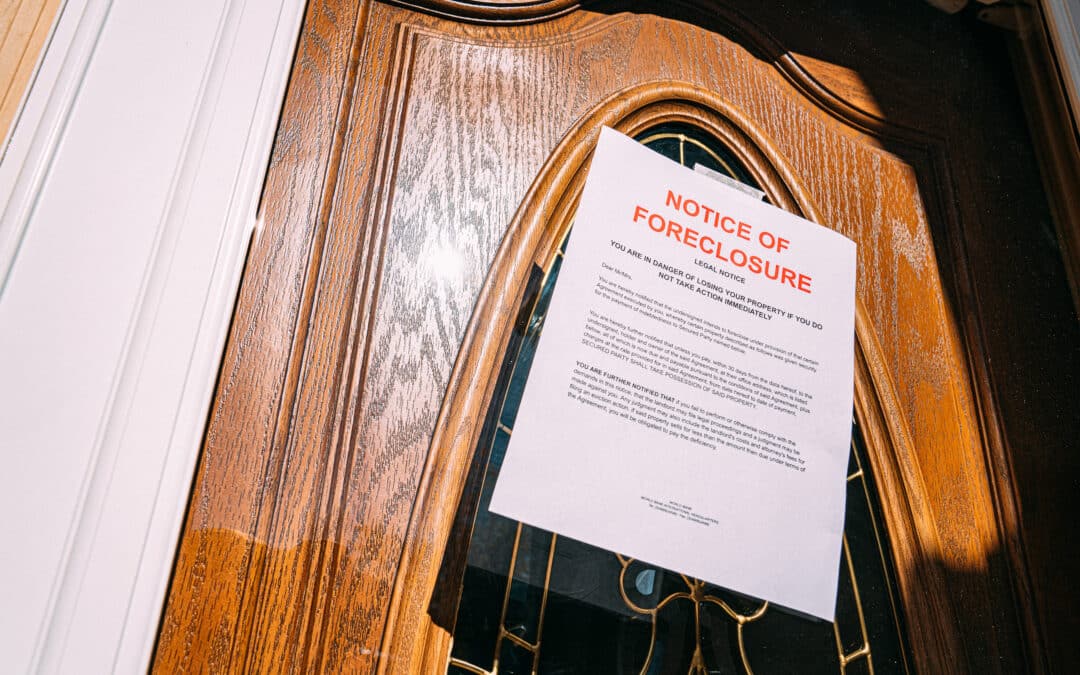 NOTICE OF
FORECLOSURE
LEGAL NOTICE
YOU ARE IN DANGER OF LOSING YOUR PROPERTY IF YOU DO
NOT TAKE ACTION IMMEDIATELY
Dear Mr/Mrs,
You are hereby notified that the undersigned intends to foreclose under provision of that certain
Agreement executed by you, whereby certain property described as follows was given security
for the payment of indebtedness to Secured Party named below.
You are hereby further notified that unless you pay, within 30 days from the data hereof, to the
undersigned, holder and owner of the said Agreement, at their office address, which is listed
below, all of which is now due and payable pursuant to the conditions of said Agreement, plus
charges at the rate provided for in said Agreement, from date hereof to date of payment,
SECURED PARTY SHALL TAKE POSSESSION OF SAID PROPERTY.
YOU ARE FURTHER NOTIFIED THAT if you fail to perform or otherwise comply with the
demands in this notice, that the landlord may file legal proceedings and a judgment may be
made against you. Any judgment may also include the landlord's costs and attorney's fees for
filing an eviction action. If said property sells for less than the amount then due under terms of
the Agreement, you will be obligated to pay the deficiency.
WORLD BANK
WORLD BANK INTERNATIONAL HEADQUARTERS